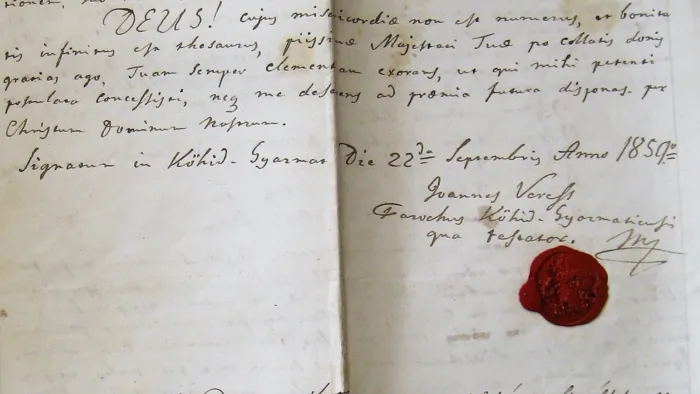 DEUS! cujus misericordiæ non est numerus, et bonita
tis infinitus est thesaurus, piissimæ Majestati Tuæ pro collatis donis
gratias ago, Tuam semper clementiam exorans, ut qui mihi petenti
postulata concessisti, neq me deserens ad præmia futura disponas. per
Christum Dominum Nostrum.
Signatum in Köhid-Gyarmat Die 22da Septembris Anno 1850o
Joannes Veress
Parochus Köhid-Gyarmatiensis
qua testator.